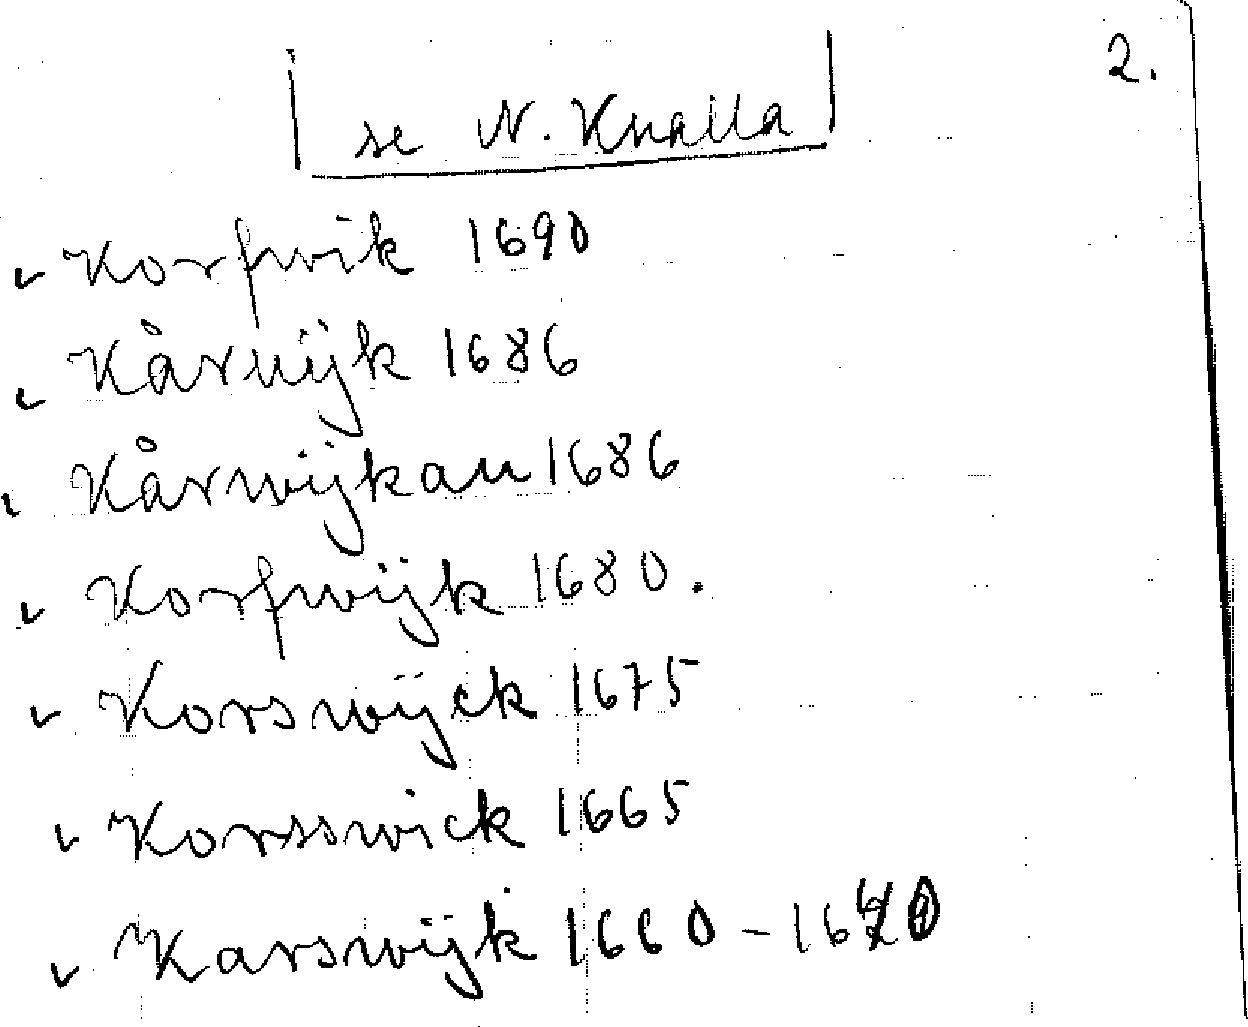 2.
se N. Knalla
Korfwik 1690
Kårwijk 1686
Kårwijkan 1686
Korfwijk 1680.
Korswijck 1675
Korsswick 1665
Karswijk 1660 -